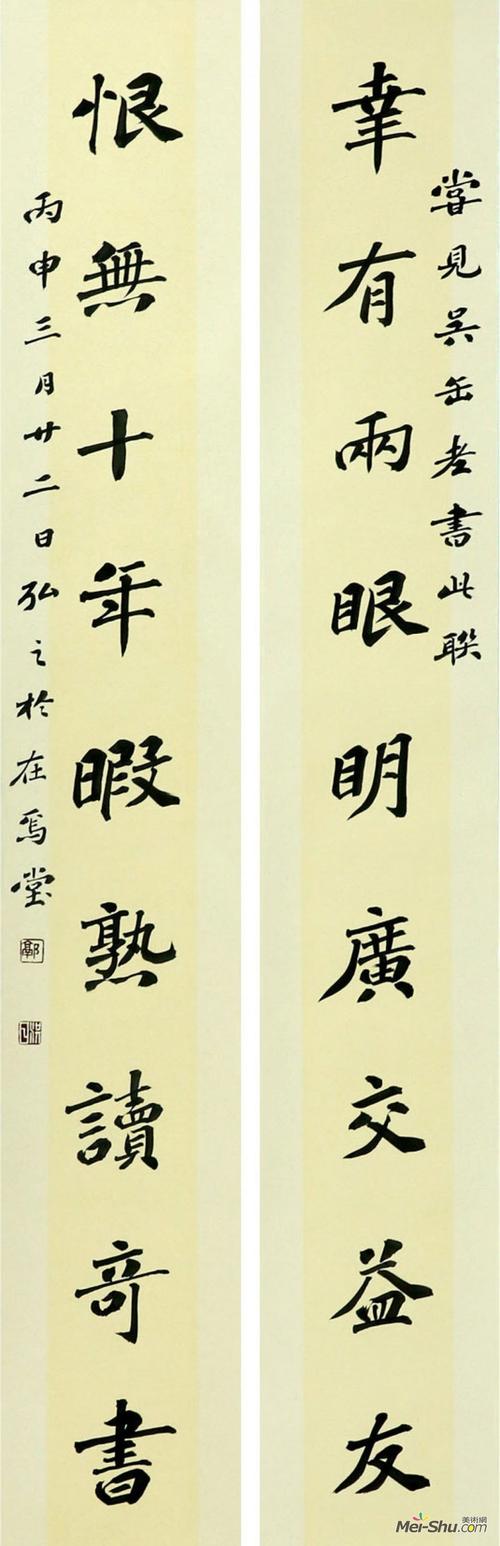 嘗見吴缶老書此聯
幸有兩眼明廣交益友
恨無十年暇熟讀奇書
丙申三月廿二日弘之於在焉堂
郭
美術網
Mei-Shu.com